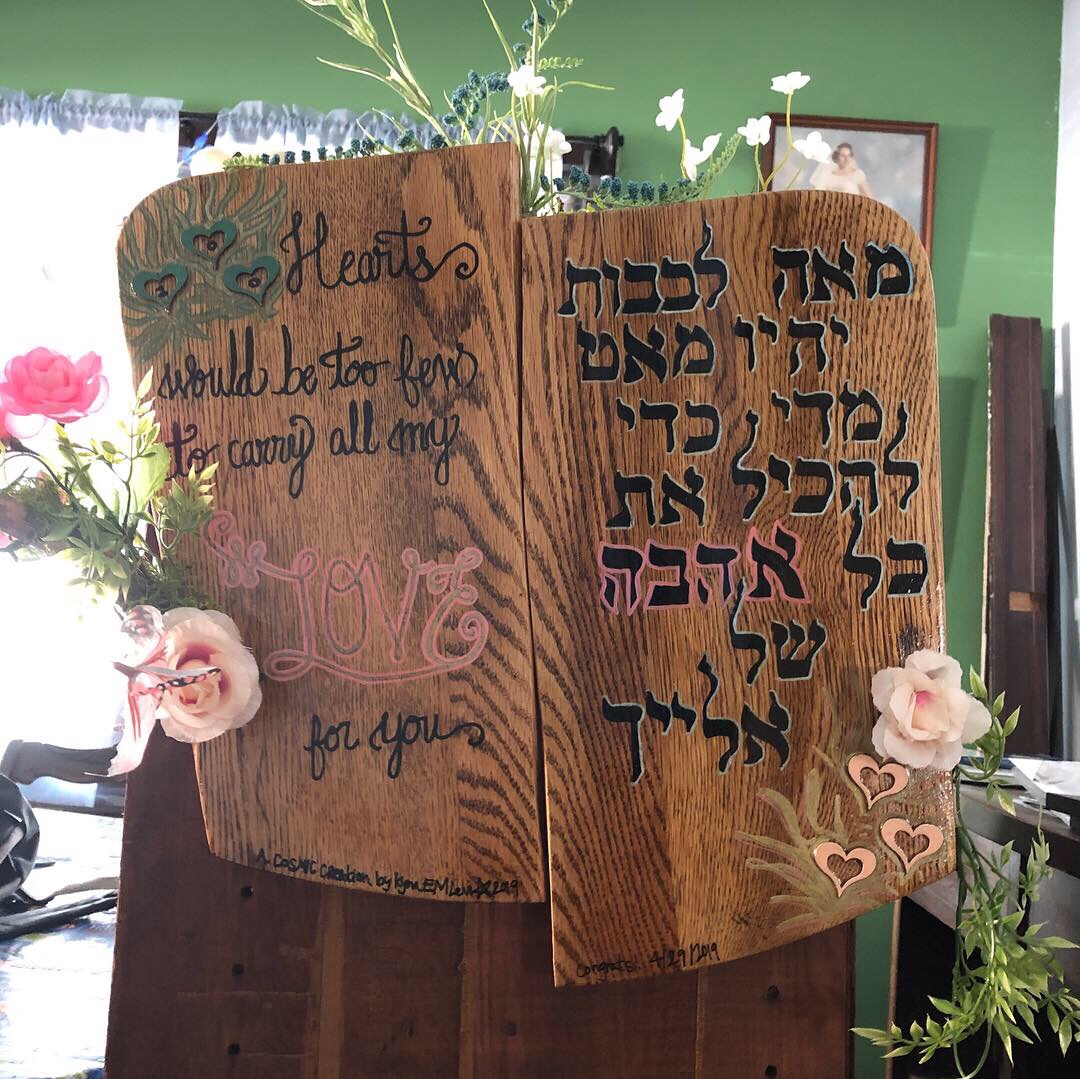 100 Hearts
would be too few
to carry all my
LOVE
for you
A COSMIC Creation by 2019
מאה לבבות
יהיו מאט
מדי כדי
להכיל את
כל אהבה
של
אלייך
Congrats: 4/29/2019